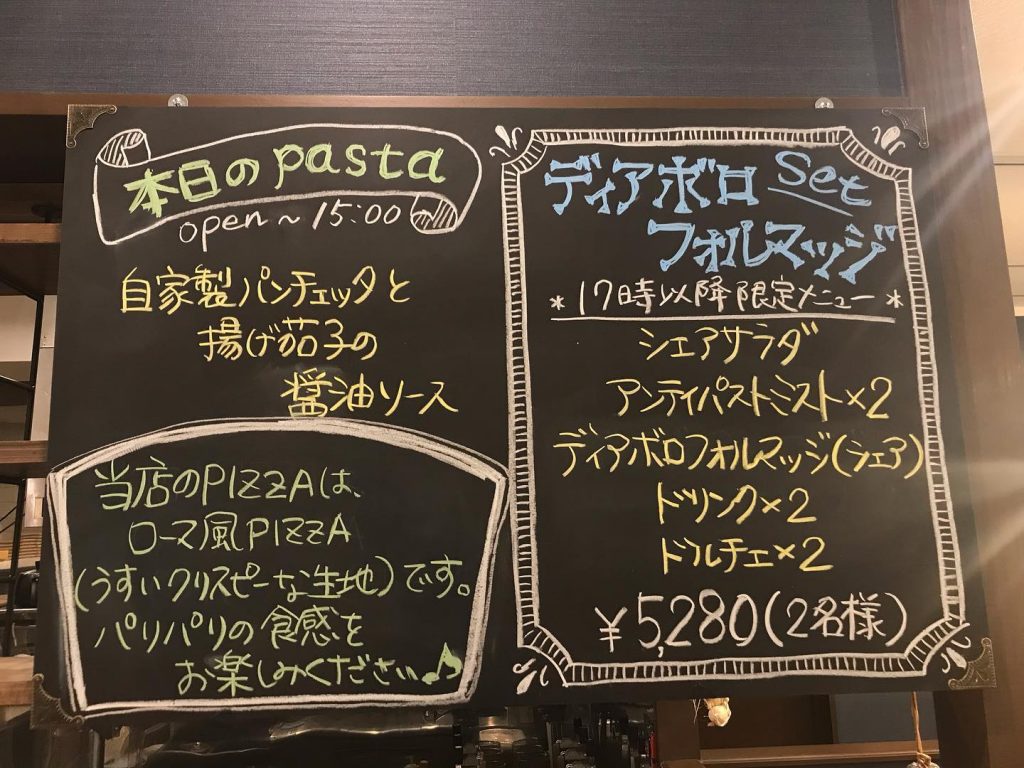 本日のpasta
open～15:00
自家製パンチェッタと
揚げ茄子の
醤油ソース
当店のPIZZAは、
ローマ風PIZZA
(うすいクリスピーな生地)です。
パリパリの食感を
お楽しみください♪
ディアボロ Set
フォルマッジ
*17時以降限定メニュー*
シェアサラダ
アンティパストミスト×2
ディアボロフォルマッジ(シェア)
ドリンク×2
ドルチェ×2
¥5,280(2名様)